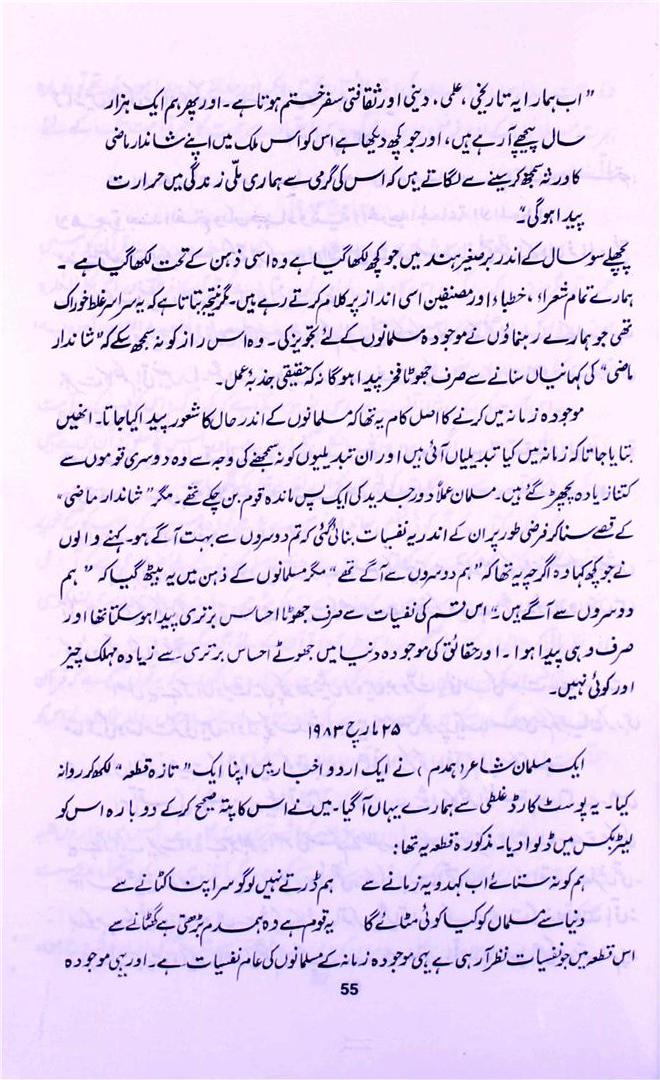 ” اب ہمارا یہ تاریخی ، علمی ، دینی اور ثقافتی سفر ختم ہوتا ہے ۔ اور پھر ہم ایک ہزار
سال پیچھے آرہے ہیں ، اور جو کچھ دیکھا ہے اس کو اس ملک میں اپنے شاندار ماضی
کا ورثہ سمجھ کر سینے سے لگاتے ہیں کہ اس کی گرمی سے ہماری ملّی زندگی میں حرارت
پیدا ہوگی ۔“
پچھلے سو سال کے اندر برصغیر ہند میں جو کچھ لکھا گیا ہے وہ اسی ذہن کے تحت لکھا گیا ہے ۔
ہمارے تمام شعراء ، خطباء اور مصنفین اسی انداز پر کلام کرتے رہے ہیں ۔ مگر نتیجہ بتاتا ہے کہ یہ سراسر غلط خوراک
تھی جو ہمارے رہنماؤں نے موجودہ مسلمانوں کے لئے تجویز کی ۔ وہ اس راز کو نہ سمجھ سکے کہ ” شاندار
ماضی “ کی کہانیاں سنانے سے صرف جھوٹا فخر پیدا ہوگا نہ کہ حقیقی جذبۂ عمل ۔
موجودہ زمانہ میں کرنے کا اصل کام یہ تھا کہ مسلمانوں کے اندر حال کا شعور پیدا کیا جاتا ۔ انھیں
بتایا جاتا کہ زمانہ میں کیا تبدیلیاں آئی ہیں اور ان تبدیلیوں کو نہ سمجھنے کی وجہ سے وہ دوسری قوموں سے
کتنا زیادہ بچھڑ گئے ہیں ۔ مسلمان عملاً دور جدید کی ایک پس ماندہ قوم بن چکے تھے ۔ مگر ” شاندار ماضی “
کے قصے سنا کر فرضی طور پر ان کے اندر یہ نفسیات بنائی گئی کہ تم دوسروں سے بہت آگے ہو ۔ کہنے والوں
نے جو کچھ کہا وہ اگرچہ یہ تھا کہ ” ہم دوسروں سے آگے تھے “ مگر مسلمانوں کے ذہن میں یہ بیٹھ گیا کہ ” ہم
دوسروں سے آگے ہیں “ اس قسم کی نفسیات سے صرف جھوٹا احساس برتری پیدا ہو سکتا تھا اور
صرف وہی پیدا ہوا ۔ اور حقائق کی موجودہ دنیا میں جھوٹے احساس برتری سے زیادہ مہلک چیز
اور کوئی نہیں ۔
۲۵ مارچ ۱۹۸۳
ایک مسلمان شاعر ( ہمدم ) نے ایک اردو اخبار میں اپنا ایک ” تازہ قطعہ “ لکھ کر روانہ
کیا ۔ یہ پوسٹ کارڈ غلطی سے ہمارے یہاں آگیا ۔ میں نے اس کا پتہ صحیح کر کے دوبارہ اس کو
لیٹر بکس میں ڈلوا دیا ۔ مذکورہ قطعہ یہ تھا :
ہم کو نہ ستائے اب کہہ دو یہ زمانے سے ہم ڈرتے نہیں لوگو سر اپنا کٹانے سے
دنیا سے مسلماں کو کیا کوئی مٹائے گا یہ قوم ہے وہ ہمدم بڑھتی ہے گھٹانے سے
اس قطعہ میں جو نفسیات نظر آرہی ہے یہی موجودہ زمانہ کے مسلمانوں کی عام نفسیات ہے ۔ اور یہی موجودہ
55